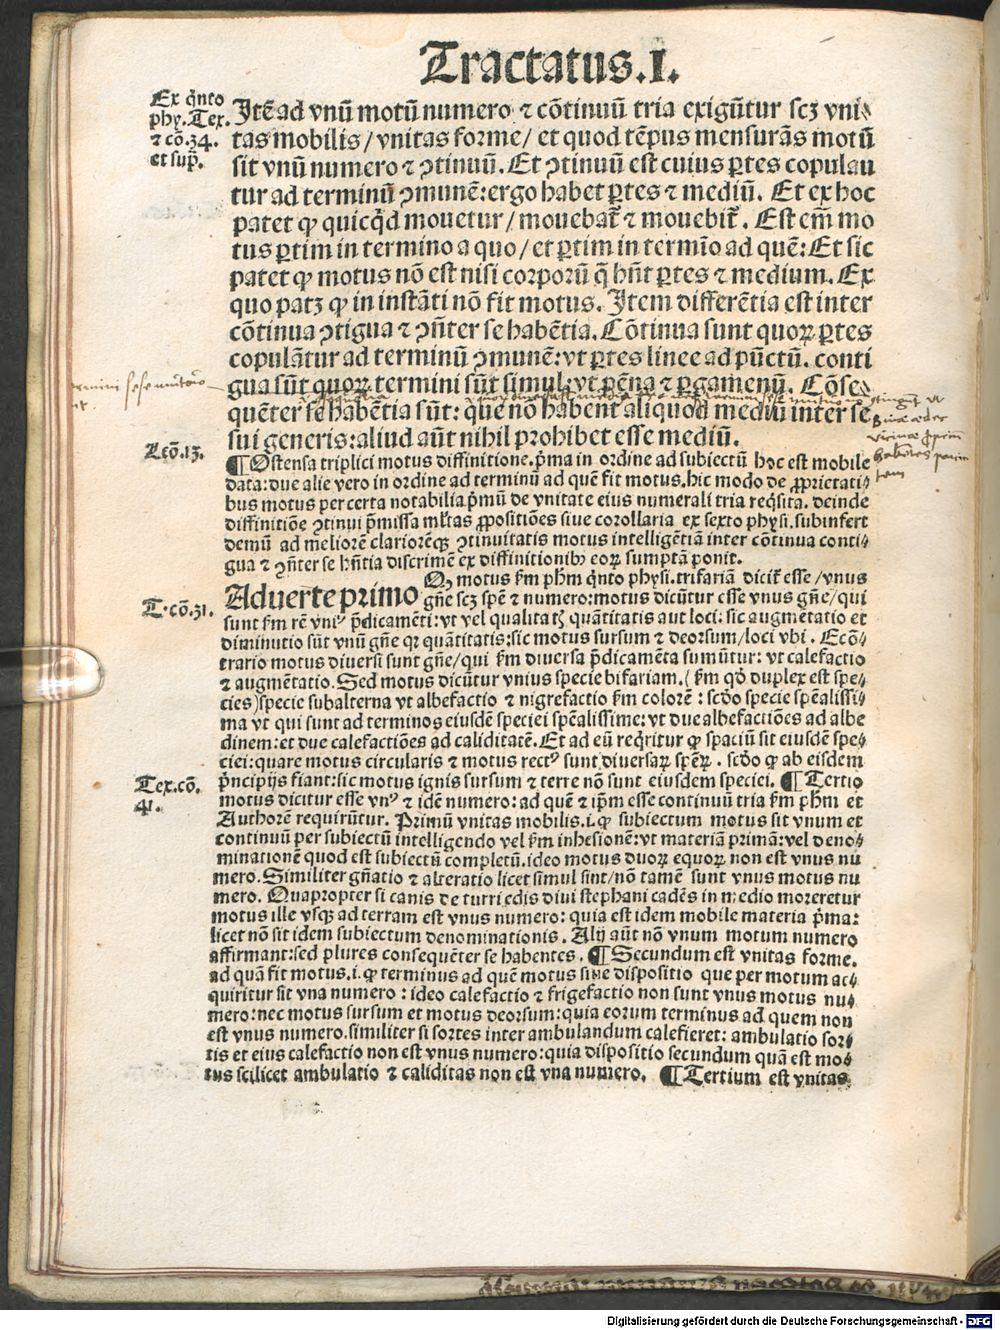 Tractatus.I.
Ex q̃nto
phy.Tex.
⁊ cõ.34.
et sup̃.
Itẽ ad vnũ motũ numero ⁊ cõtinuũ tria exigũtur scꝫ vni⸗
tas mobilis/vnitas forme/et quod tẽpus mensurãs motũ
sit vnũ numero ⁊ ꝯtinuũ. Et ꝯtinuũ est cuius ꝑtes copulan
tur ad terminũ ꝯmunẽ:ergo habet ꝑtes ⁊ mediũ. Et ex hoc
patet ꝙ quicq̃d mouetur/mouebat̃ ⁊ mouebit̃. Est em̃ mo
tus ꝑtim in termino a quo/et ꝑtim in termĩo ad quẽ:Et sic
patet ꝙ motus nõ est nisi corporũ q̃ hñt ꝑtes ⁊ medium. Ex
quo patꝫ ꝙ in instãti nõ fit motus. Item differẽtia est inter
cõtinua ꝯtigua ⁊ ꝯñter se habẽtia. Cõtinua sunt quoꝝ ꝑtes
copulãtur ad terminũ ꝯmunẽ:vt ꝑtes linee ad pũctũ. conti
gua sũt quoꝝ termini sũt simul:vt pẽna ⁊ ꝑgamenũ. Cõse⸗
quẽter se habẽtia sũt: que nõ habent aliquod mediũ inter se
sui generis:aliud aũt nihil prohibet esse mediũ.
Lcõ.13.
¶Ostensa triplici motus diffinitione.p̃ma in ordine ad subiectũ hoc est mobile
data:due alie vero in ordine ad terminũ ad quẽ fit motus.hic modo de ꝓprietati⸗
bus motus per certa notabilia p̃mũ de vnitate eius numerali tria req̃sita. deinde
diffinitiõe ꝯtinui p̃missa ml̃tas ꝓpositiões siue corollaria ex sexto physi.subinfert
demũ ad meliorẽ clariorẽqꝫ ꝯtinuitatis motus intelligẽtiã inter cõtinua conti⸗
gua ⁊ ꝯñter se hñtia discrimẽ ex diffinitionibꝰ eoꝝ sumptã ponit.
T.cõ.31.
Aduerte primo Qꝫ motus ẜm ph̃m q̃nto physi.trifariã dicit̃ esse/vnus
gñe scꝫ spẽ ⁊ numero:motus dicũtur esse vnus gñe/qui
sunt ẜm rẽ vniꝰ p̃dicamẽti:vt vel qualitatꝭ quãtitatis aut loci: sic augmẽtatio et
diminutio sũt vnũ gñe qꝛ quãtitatis:sic motus sursum ⁊ deorsum/loci vbi. Ecõ⸗
trario motus diuersi sunt gñe/qui ẜm diuersa p̃dicamẽta sumũtur: vt calefactio
⁊ augmẽtatio. Sed motus dicũtur vnius specie bifariam.(ẜm qd̃ duplex est spe⸗
cies)specie subalterna vt albefactio ⁊ nigrefactio ẜm colorẽ : scd̃o specie spẽalissi⸗
ma vt qui sunt ad terminos eiusdẽ speciei spẽalissime:vt due albefactiões ad albe
dinem:et due calefactiões ad caliditatẽ. Et ad eũ req̃ritur ꝙ spaciũ sit eiusdẽ spe⸗
ciei:quare motus circularis ⁊ motus rectꝰ sunt diuersaꝝ spẽꝝ . scd̃o ꝙ ab eisdem
p̃ncipijs fiant:sic motus ignis sursum ⁊ terre nõ sunt eiusdem speciei. ¶Tertio
Tex.cõ.
41.
motus dicitur esse vnꝰ ⁊ idẽ numero: ad quẽ ⁊ ip̃m esse continuũ tria ẜm ph̃m et
Authorẽ requirũtur. Primũ vnitas mobilis.i.ꝙ subiectum motus sit vnum et
continuũ per subiectũ intelligendo vel ẜm inhesionẽ:vt materiã primã:vel deno⸗
minationẽ quod est subiectũ completũ.ideo motus duoꝝ equoꝝ non est vnus nu
mero. Similiter gñatio ⁊ alteratio licet simul sint/nõ tamẽ sunt vnus motus nu
mero. Quapropter si canis de turri edis diui stephani cadẽs in medio moreretur
motus ille vsqꝫ ad terram est vnus numero: quia est idem mobile materia p̃ma:
licet nõ sit idem subiectum denominationis. Alij aũt nõ vnum motum numero
affirmant:sed plures consequẽter se habentes. ¶Secundum est vnitas forme.
ad quã fit motus.i.ꝙ terminus ad quẽ motus siue dispositio que per motum ac⸗
quiritur sit vna numero : ideo calefactio ⁊ frigefactio non sunt vnus motus nu⸗
mero:nec motus sursum et motus deorsum:quia eorum terminus ad quem non
est vnus numero.similiter si sortes inter ambulandum calefieret: ambulatio sor⸗
tis et eius calefactio non est vnus numero:quia dispositio secundum quã est mo⸗
tus scilicet ambulatio ⁊ caliditas non est vna numero. ¶Tertium est vnitas
Digitalisierung gefördert durch die Deutsche Forschungsgemeinschaft - DFG